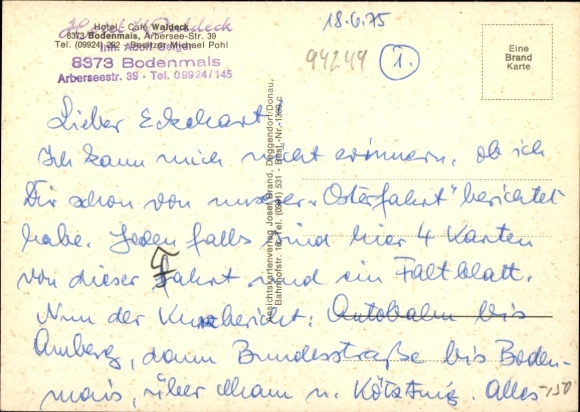 Hotel - Café Waldeck
8373 Bodenmais, Arbersee-Str. 39
Tel. (09924) 292 - Besitzer Michael Pohl
Hotel Waldeck
Inh. Adolf Geiger
8373 Bodenmais
Arberseestr. 39 · Tel. 09924/145
18.6.75
94249
1.
Eine
Brand
Karte
Ansichtskartenverlag Josef Brand, Deggendorf/Donau,
Bahnhofstr. Tel. (0991) 531 - Best.-Nr.
Lieber Eckhart,
Ich kann mich nicht erinnern, ob ich
Dir schon von unserer „Osterfahrt" berichtet
habe. Jedenfalls sind hier 4 Karten
von dieser Fahrt und ein Faltblatt.
Nun der Kurzbericht: Autobahn bis
Amberg, dann Bundesstraße bis Boden-
mais, über Cham u. Kötzting. Alles
-150